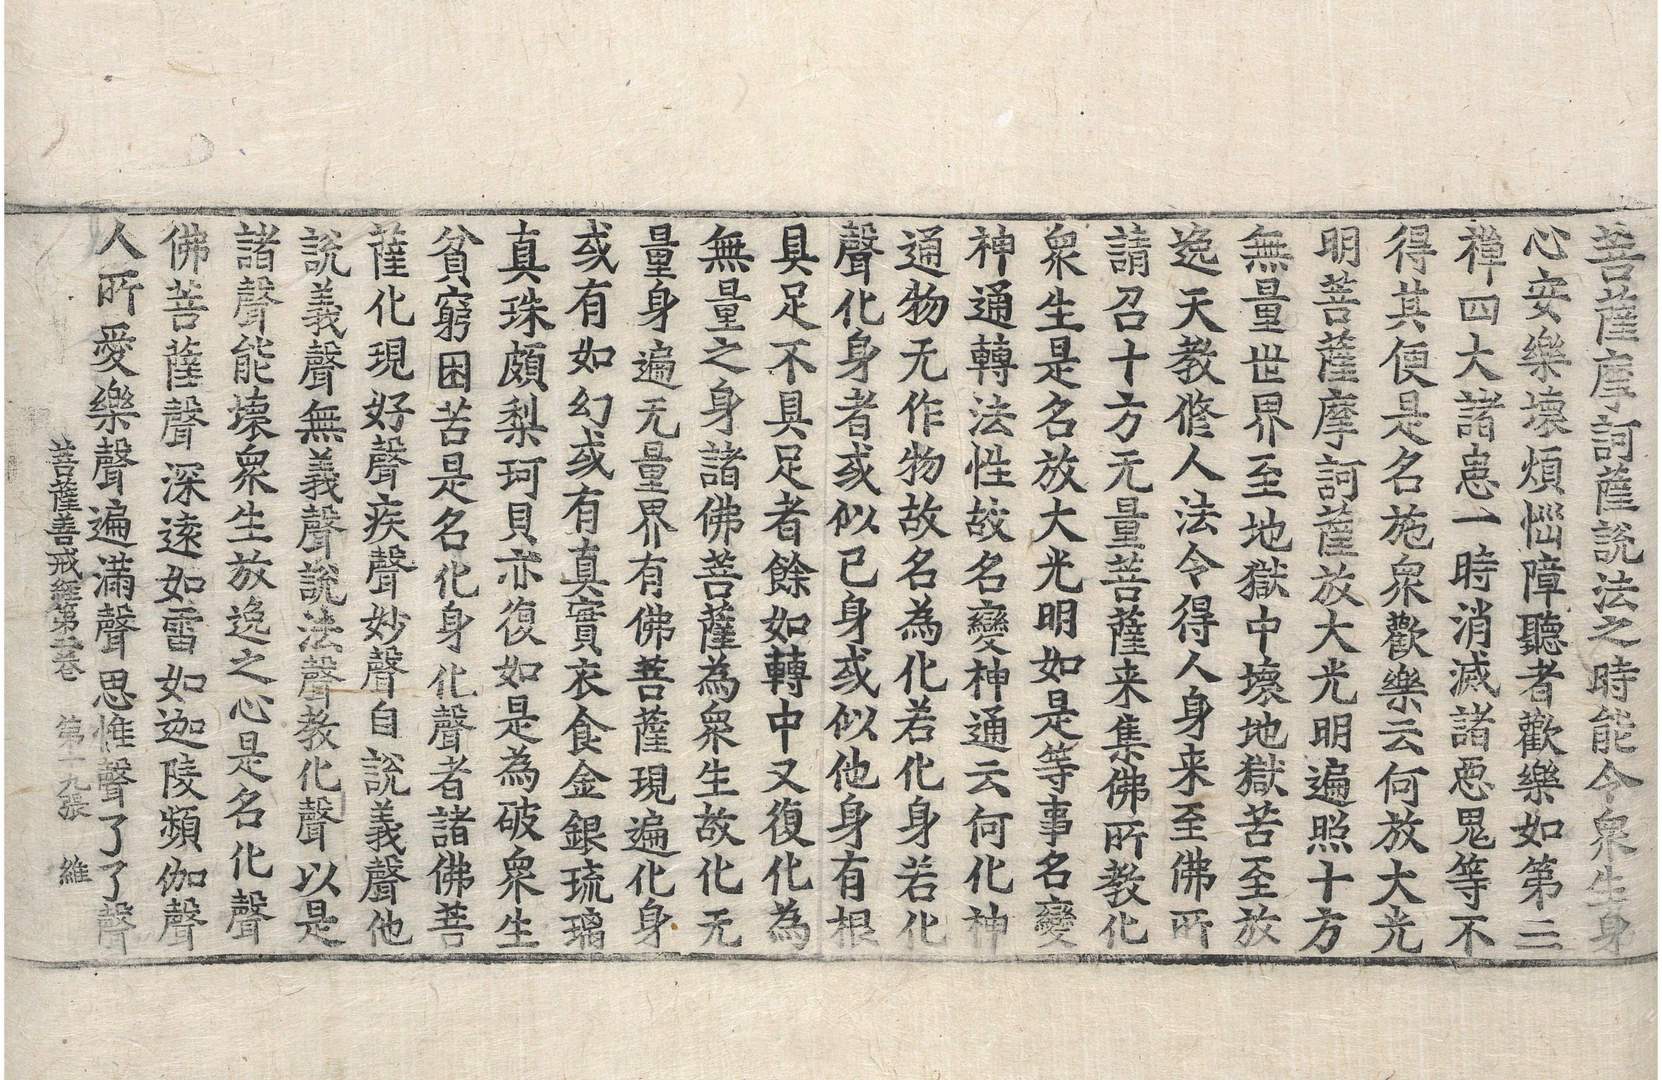 菩薩摩訶薩說法之時能令衆生身
心安樂壞煩惱障聽者歡樂如第二
禪四大諸患一時消滅諸惡鬼等不
得其便是名施衆歡樂云何放大光
明菩薩摩訶薩放大光明遍照十方
無量世界至地獄中壞地獄苦至放
逸天教修人法令得人身来至佛所
請召十方无量菩薩来集佛所教化
衆生是名放大光明如是等事名變
神通轉法性故名變神通云何化神
通物无作物故名為化若化身若化
聲化身者或似已身或似他身有根
具足不具足者餘如轉中又復化為
無量之身諸佛菩薩為衆生故化无
量身遍无量界有佛菩薩現遍化身
或有如幻或有真實衣食金銀琉璃
真珠頗梨珂貝亦復如是為破衆生
貧窮困苦是名化身化聲者諸佛菩
薩化現好聲疾聲妙聲自說義聲他
說義聲無義聲說法聲教化聲以是
諸聲能壞衆生放逸之心是名化聲
佛菩薩聲深遠如雷如迦陵頻伽聲
人所愛樂聲遍滿聲思惟聲了了聲
菩薩善戒經第二卷 第十九張 維